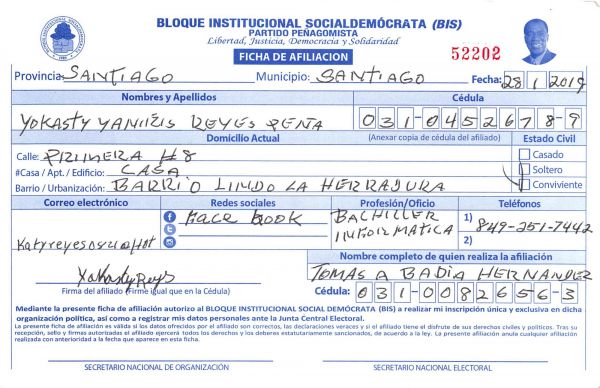 BLOQUE INSTITUCIONAL SOCIALDEMÓCRATA (BIS)
PARTIDO PEÑAGOMISTA
Libertad, Justicia, Democracia y Solidaridad
FICHA DE AFILIACION
52202
Provincia: SANTIAGO Municipio: SANTIAGO Fecha: 28 1 2019
Nombres y Apellidos Cédula
YOKASTY REYES PEÑA 031-0452678-9
Domicilio Actual (Anexar copia de cédula del afiliado) Estado Civil
Calle: PRIMERA #8 Casado
#Casa / Apt. / Edificio: CASA Soltero
Barrio / Urbanización: BARRIO LINDO LA HERRADURA Conviviente
Correo electrónico Redes sociales Profesión/Oficio Teléfonos
Face book BACHILLER 1) 849-251-7442
INFORMATICA 2)
Nombre completo de quien realiza la afiliación
YokastyReys TOMAS A BADIA HERNANDEZ
Firma del afiliado (Firme igual que en la Cédula) Cédula: 031-0082656-3
Mediante la presente ficha de afiliación autorizo al BLOQUE INSTITUCIONAL SOCIAL DEMÓCRATA (BIS) a realizar mi inscripción única y exclusiva en dicha
organización política, así como a registrar mis datos personales ante la Junta Central Electoral.
La presente ficha de afiliación es válida si los datos ofrecidos por el afiliado son correctos, las declaraciones veraces y si el afiliado tiene el disfrute de sus derechos civiles y políticos. Tras su
recepción, sello y firmas autorizadas el afiliado ejercerá todos los derechos y los deberes estatutariamente sancionados, de acuerdo a la ley. La presente afiliación anula cualquier afiliación
realizada con anterioridad a la fecha de afiliación en esta ficha.
SECRETARIO NACIONAL DE ORGANIZACIÓN SECRETARIO NACIONAL ELECTORAL